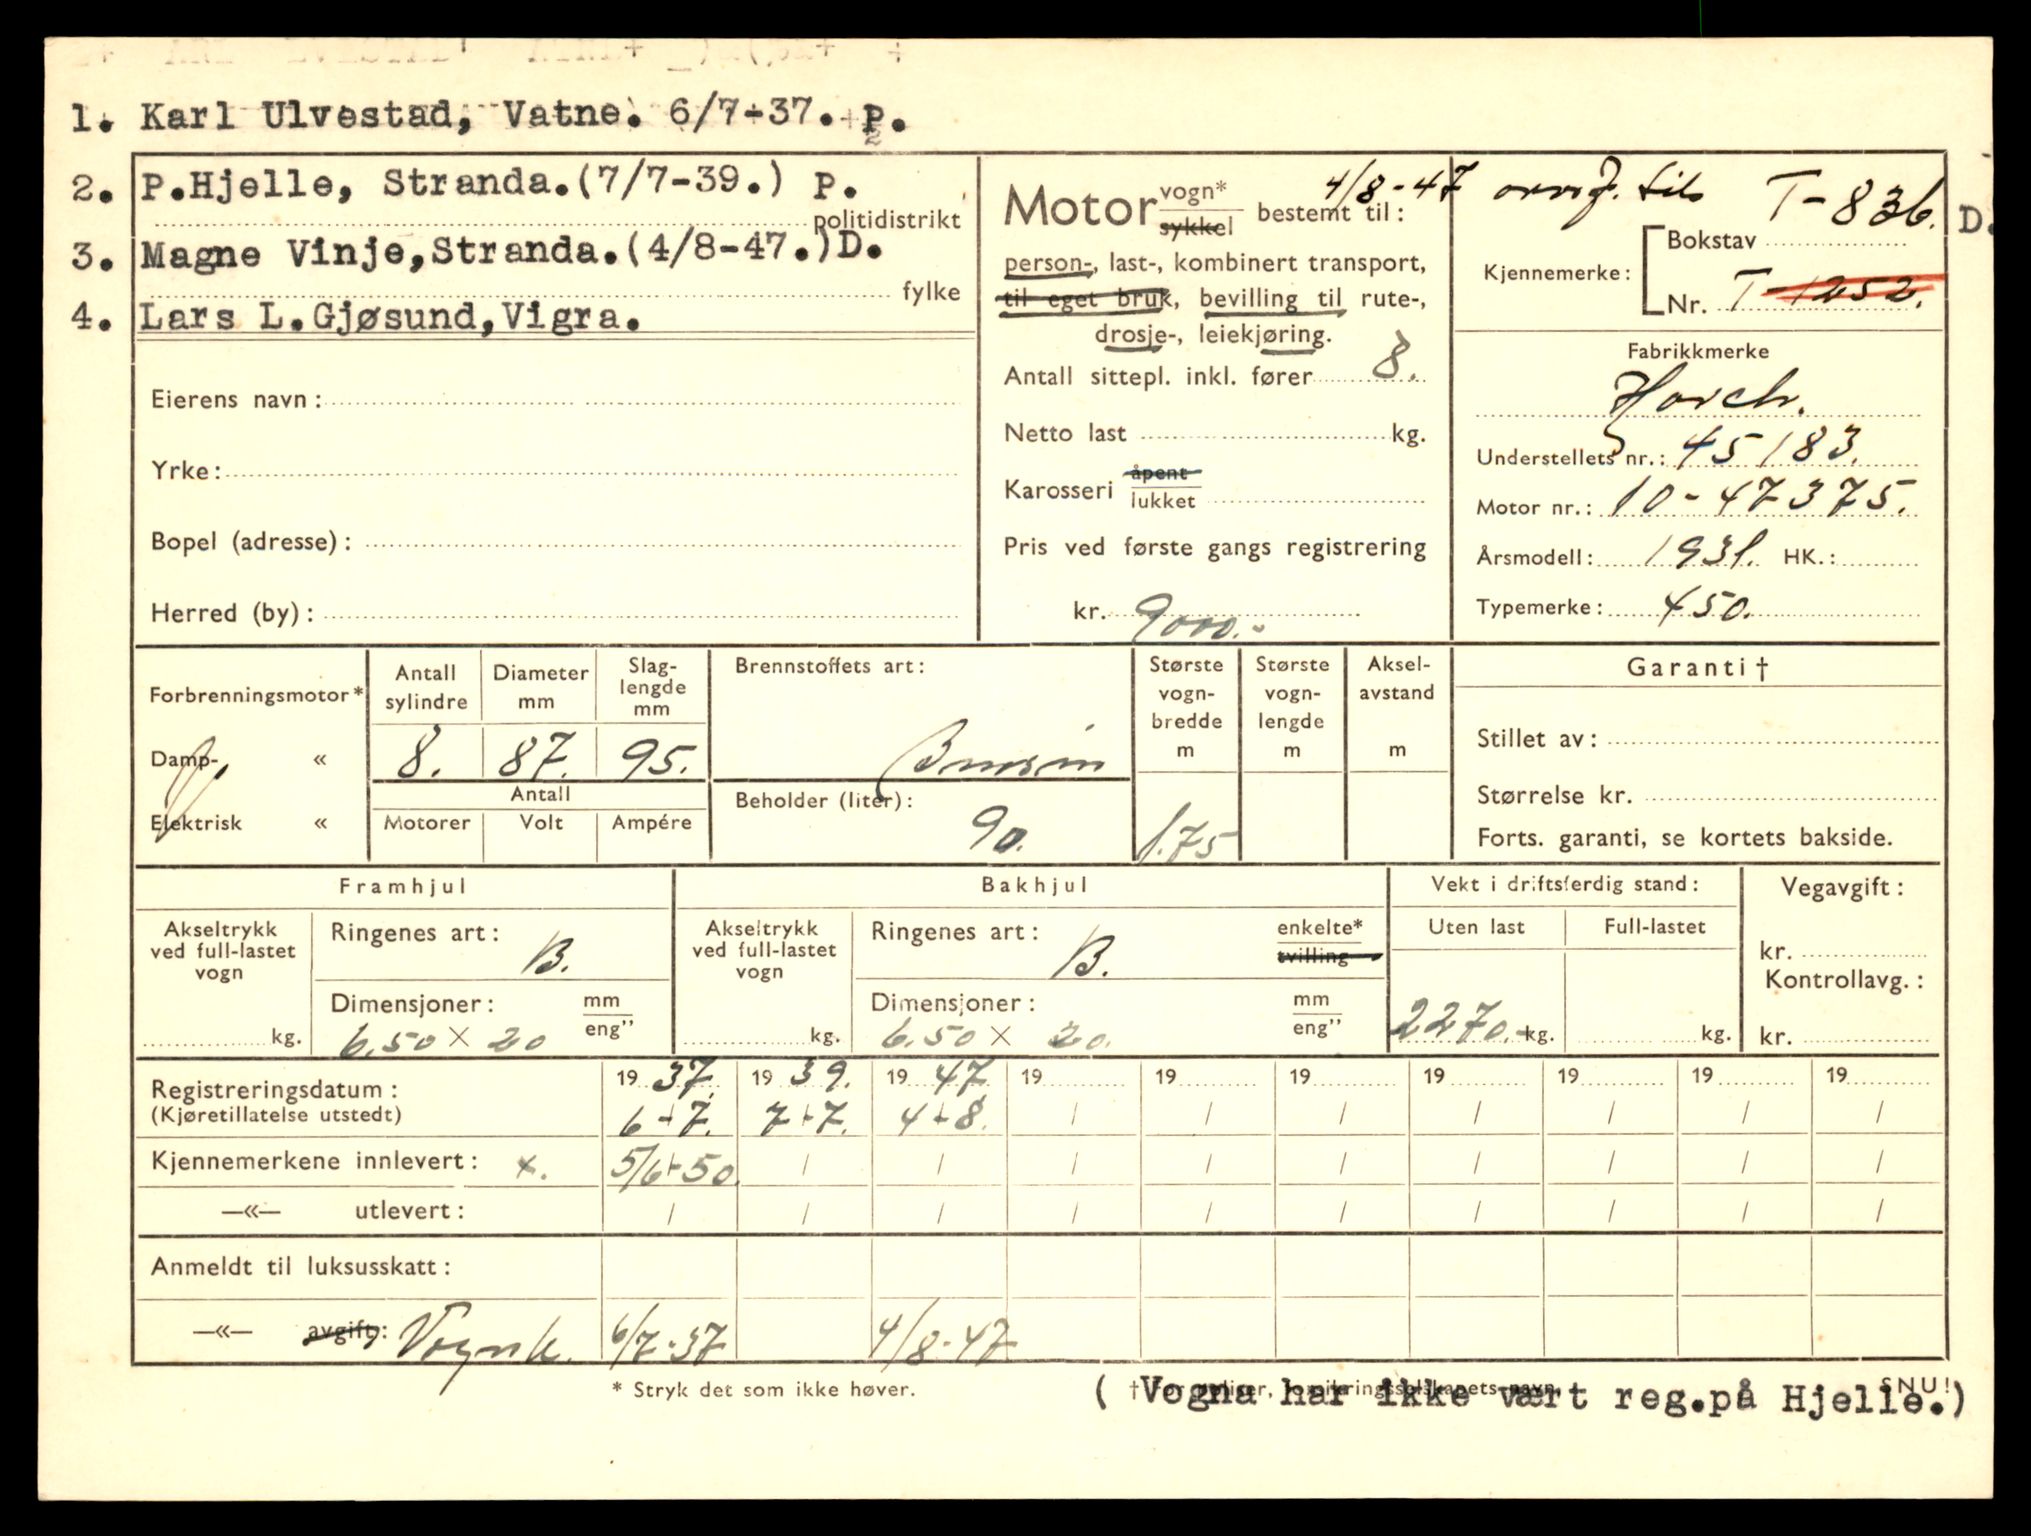 1. Karl Ulvestad, Vatne. 6/7-37. P.
2. P.Hjelle, Stranda.(7/7-39.) P.
politidistrikt
3. Magne Vinje,Stranda.(4/8-47.)D.
fylke
4. Lars L.Gjøsund,Vigra.
Eierens navn:
Yrke:
Bopel (adresse):
Herred (by):
Motor vogn* sykkel bestemt til:
person-, last-, kombinert transport,
til eget bruk, bevilling til rute-,
drosje-, leiekjøring.
Antall sittepl. inkl. fører 8.
Netto last kg.
Karosseri åpent lukket
Pris ved første gangs registrering
kr. 9000.-
4/8-47 til T-836. D.
Kjennemerke: Bokstav
Nr. T-1252.
Fabrikkmerke
Horch.
Understellets nr.: 45183.
Motor nr.: 10-47375.
Årsmodell: 1931. HK.:
Typemerke: 450.
Forbrenningsmotor*
Damp- «
Elektrisk «
Antall sylindre
8.
Diameter mm
87.
Slag-lengde mm
95.
Antall
Motorer Volt Ampére
Brennstoffets art:
Bensin
Beholder (liter):
90.
Største vogn-bredde m
1.75
Største vogn-lengde m
Aksel-avstand m
Garanti†
Stillet av:
Størrelse kr.
Forts. garanti, se kortets bakside.
Framhjul
Akseltrykk ved full-lastet vogn
kg.
Ringenes art: B.
Dimensjoner: mm eng"
6.50 × 20
Bakhjul
Akseltrykk ved full-lastet vogn
kg.
Ringenes art: B. enkelte* tvilling
Dimensjoner: mm eng"
6.50 × 20.
Vekt i driftsferdig stand:
Uten last Full-lastet
2270.- kg. kg.
Vegavgift:
kr.
Kontrollavg.:
kr.
Registreringsdatum: 1937. 1939. 1947. 19 19 19 19 19 19 19
(Kjøretillatelse utstedt) 6-7. 7-7. 4-8. / / / / / / /
Kjennemerkene innlevert: x. 5/6-50. / / / / / / / / /
—«— utlevert: / / / / / / / / / /
Anmeldt til luksusskatt:
—«— avgift: Vognk. 6/7-37 4/8-47
* Stryk det som ikke høver.
SNU!
( Vogna har ikke vært reg.på Hjelle.)